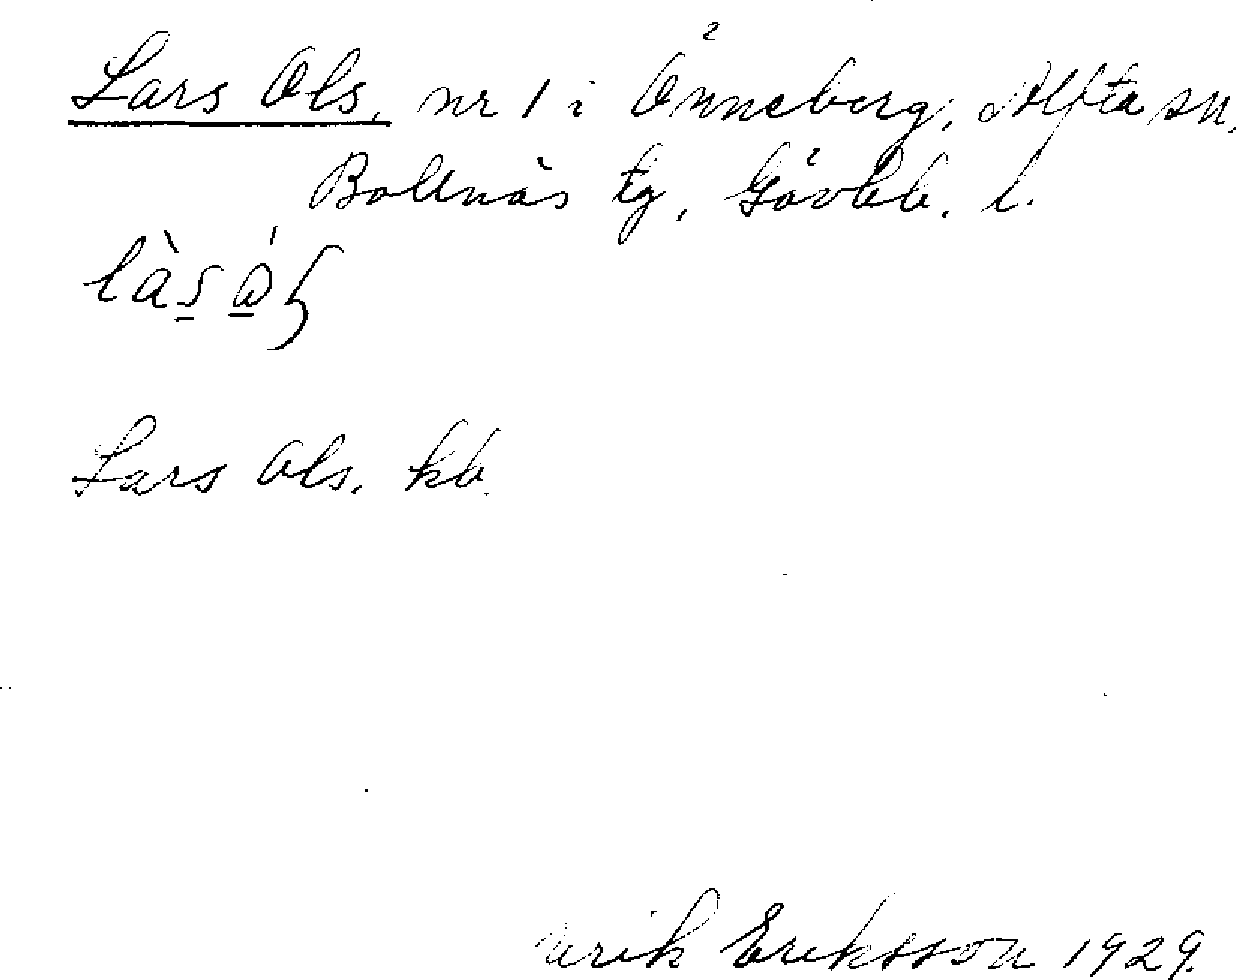 Lars Ols, nr 1 i Önneberg, Alfta sn,
Bollnäs tg, Gävleb. l.
Lars Ols. kb.
Eriksson 1929.